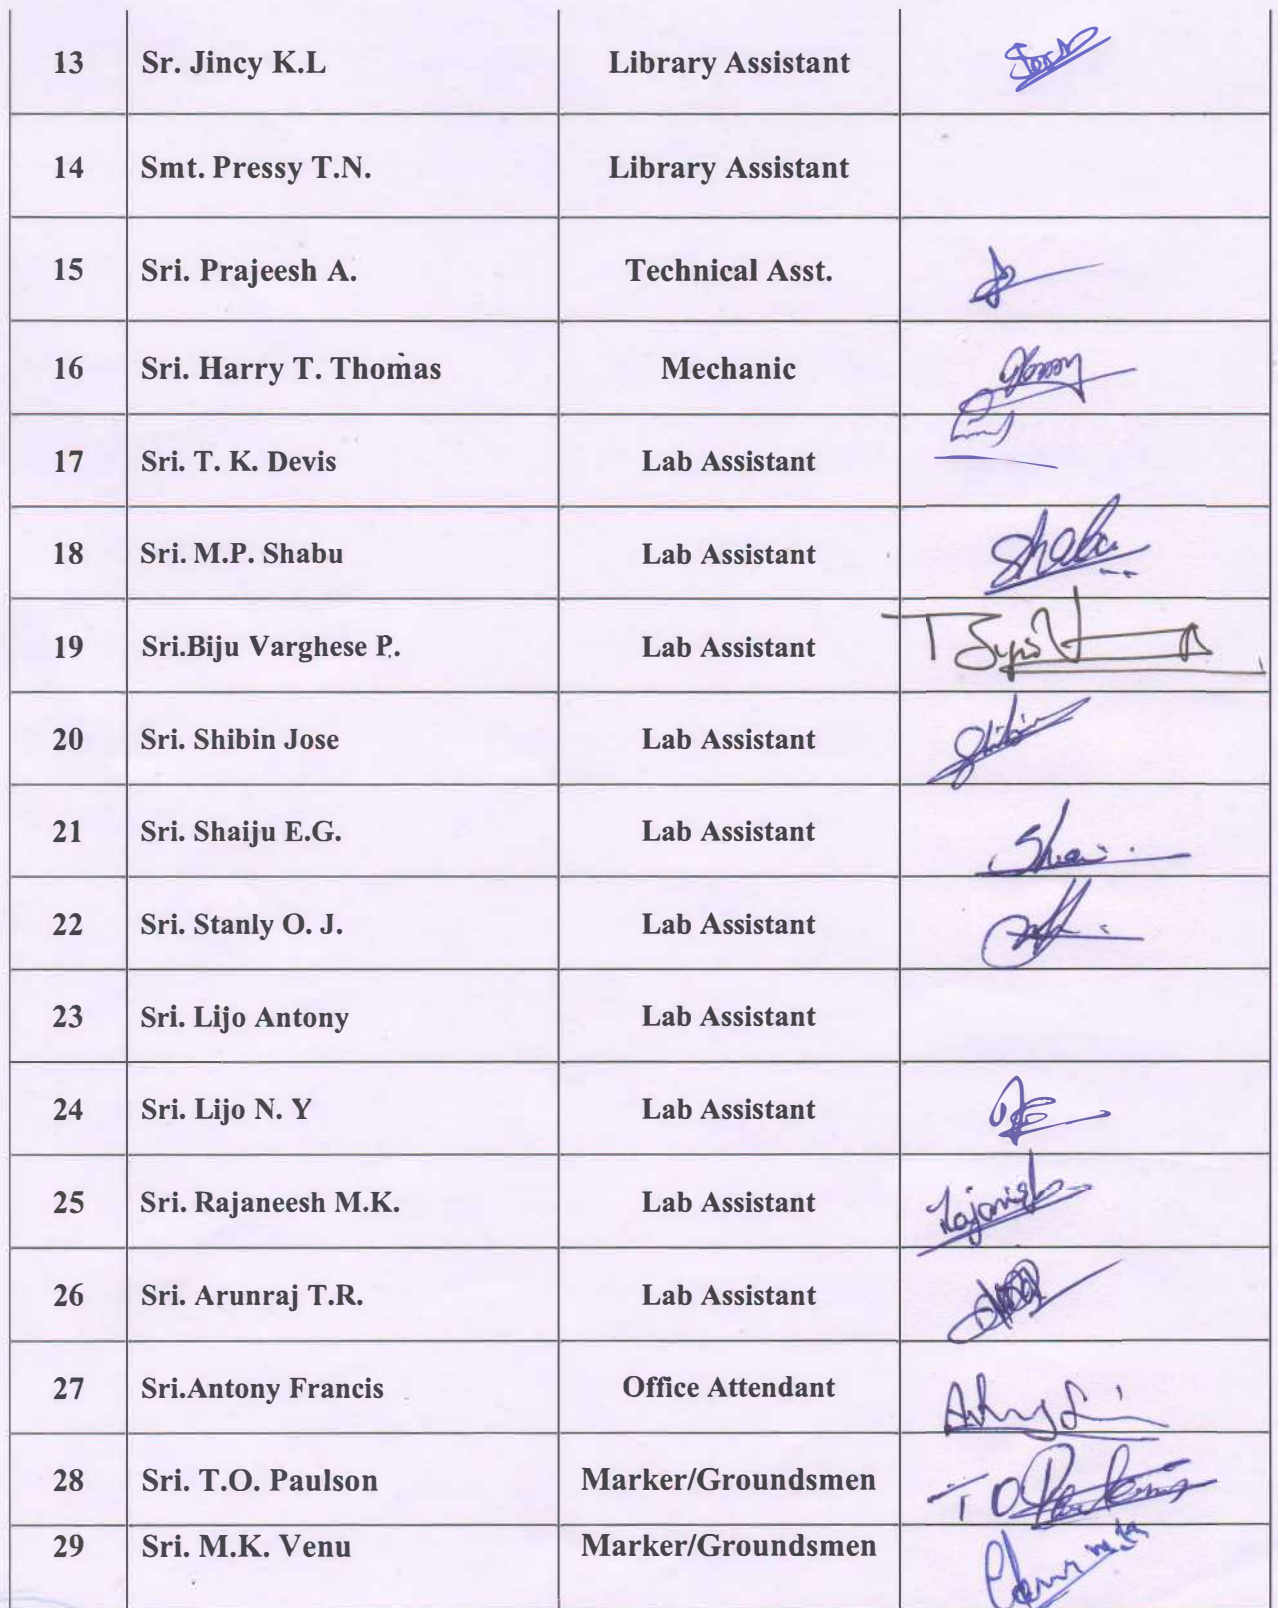 13 Sr. Jincy K.L Library Assistant
14 Smt. Pressy T.N. Library Assistant
15 Sri. Prajeesh A. Technical Asst.
16 Sri. Harry T. Thomas Mechanic
17 Sri. T. K. Devis Lab Assistant
18 Sri. M.P. Shabu Lab Assistant Shabu
19 Sri.Biju Varghese P. Lab Assistant
20 Sri. Shibin Jose Lab Assistant Shibin
21 Sri. Shaiju E.G. Lab Assistant
22 Sri. Stanly O. J. Lab Assistant
23 Sri. Lijo Antony Lab Assistant
24 Sri. Lijo N. Y Lab Assistant
25 Sri. Rajaneesh M.K. Lab Assistant
26 Sri. Arunraj T.R. Lab Assistant
27 Sri.Antony Francis Office Attendant
28 Sri. T.O. Paulson Marker/Groundsmen
29 Sri. M.K. Venu Marker/Groundsmen